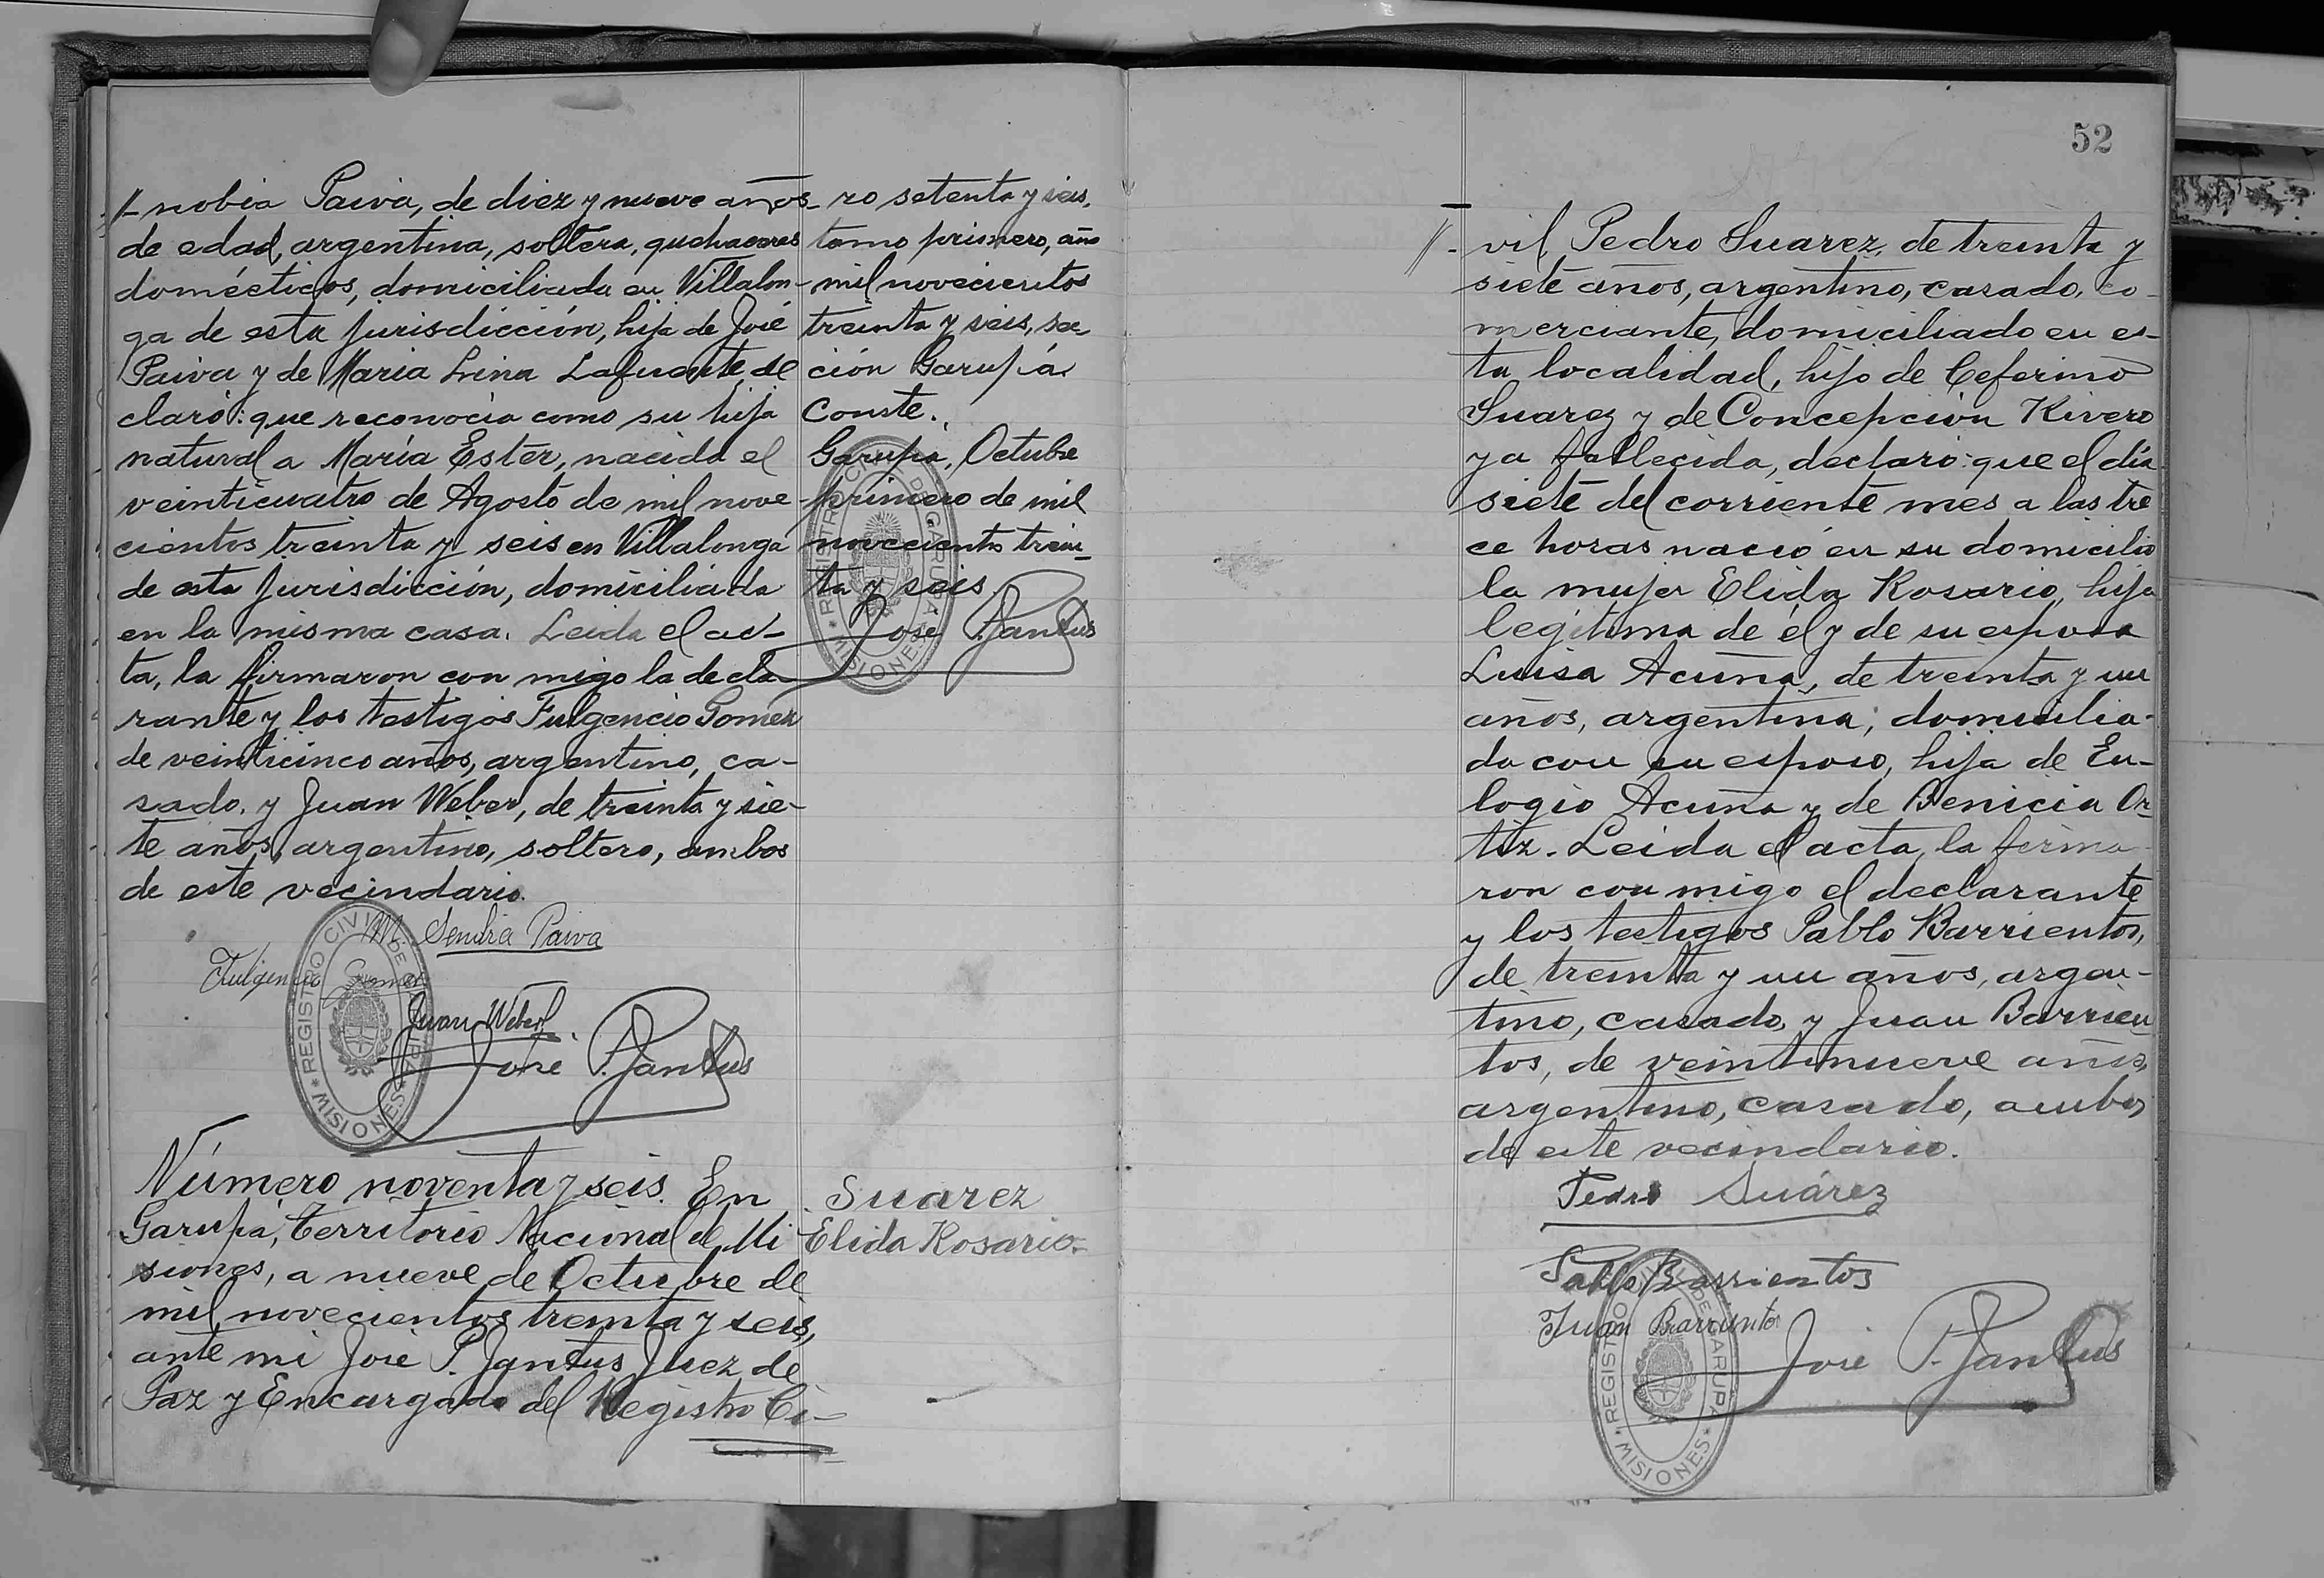 //- nobia Paiva, de diez y nueve años
de edad, argentina, soltera, quehaceres
domésticos, domiciliada en Villalon-
ga de esta jurisdicción, hija de José
Paiva y de Maria Lina Lafuente, de
claró: que reconocía como su hija
natural a María Ester, nacida el
veinticuatro de Agosto de mil nove
cientos treinta y seis en Villalonga
de esta jurisdicción, domiciliada
en la misma casa. Leida el ac-
ta, la firmaron con migo la decla
rante y los testigos Fulgencio Gomez
de veinticinco años, argentino, ca-
sado, y Juan Weber, de treinta y sie-
te años, argentino, soltero, ambos
de este vecindario.
M. Senobia Paiva
Fulgencio Gomez
Juan Weber
José P. Jantus
REGISTRO CIVIL DE GARUPA
* MISIONES *
- ro setenta y seis,
tomo primero, año
mil novecientos
treinta y seis, sec
ción Garupá.
Conste.
Garupá, Octubre
primero de mil
novecientos trein-
ta y seis.
José P. Jantus
REGISTRO CIVIL DE GARUPA
* MISIONES *
Número noventa y seis. En
Garupá, Territorio Nacional de Mi
siones, a nueve de Octubre de
mil novecientos treinta y seis,
ante mi José P. Jantus Juez de
Paz y Encargado del Registro Ci-
Suarez
Elida Rosario.-
52
//- vil, Pedro Suarez, de treinta y
siete años, argentino, casado, co-
merciante, domiciliado en es-
ta localidad, hijo de Ceferino
Suarez y de Concepción Rivero
ya fallecida, declaró: que el día
siete del corriente mes a las tre
ce horas nació en su domicilio
la mujer Elida Rosario, hija
legítima de él y de su esposa
Luisa Acuña, de treinta y un
años, argentina, domicilia-
da con su esposo, hija de Eu-
logio Acuña y de Benicia Or
tiz. Leida el acta, la firma-
ron con migo el declarante
y los testigos Pablo Barrientos,
de treinta y un años, argen-
tino, casado, y Juan Barrien
tos, de veintinueve años,
argentino, casado, ambos
de este vecindario.
Pedro Suárez
Pablo Barrientos
Juan Barrientos
José P. Jantus
REGISTRO CIVIL DE GARUPA
* MISIONES *